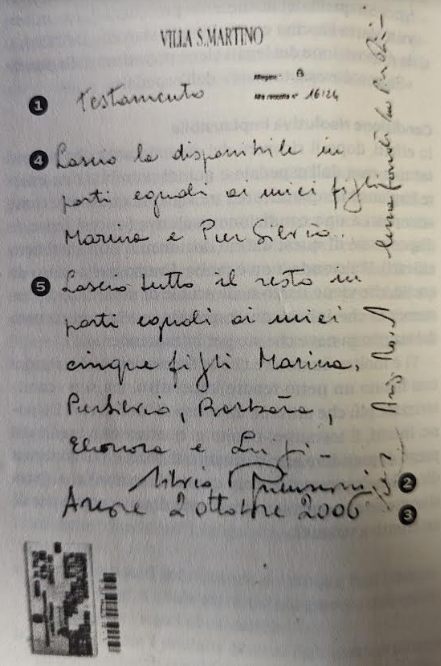 VILLA S. MARTINO
Allegato " B
Alla raccolta n° 16124
1 Testamento
4 Lascio la disponibile in
parti eguali ai miei figli
Marina e Pier Silvio.
5 Lascio tutto il resto in
parti eguali ai miei
cinque figli Marina,
PierSilvio, Barbara,
Eleonora e Luigi.
Silvio Berlusconi 2
Arcore 2 ottobre 2006 3